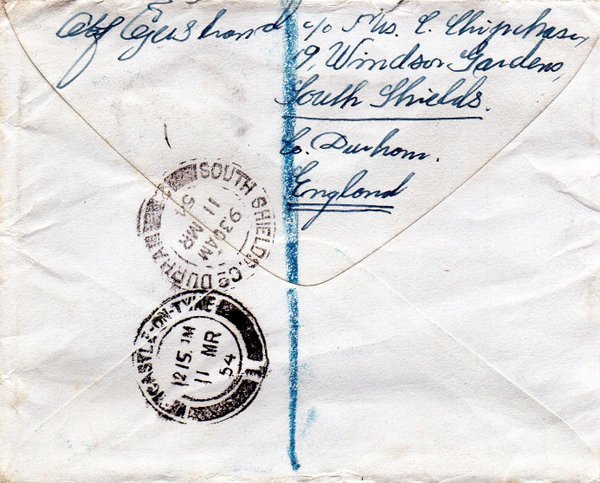 c/o Mrs. C. Shipchase,
9, Windsor Gardens,
South Shields.
Co. Durham.
England
SOUTH SHIELDS. CO DURHAM
930AM
11 MR
54
NEWCASTLE-ON-TYNE
1215 PM
11 MR
54